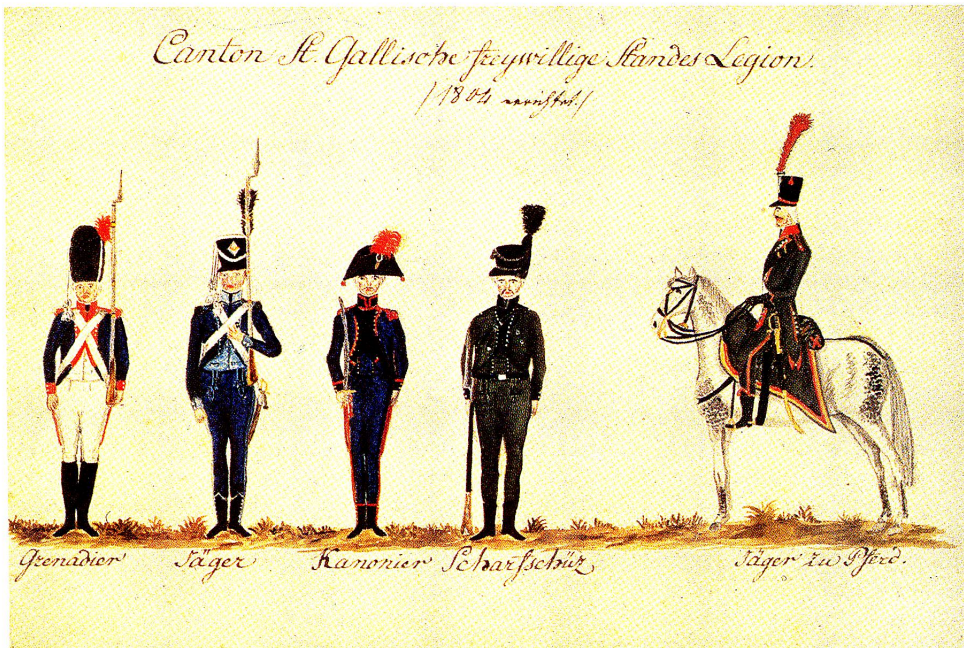 Canton St. Gallische freywillige Standes Legion.
/1804 errichtet./
Grenadier Jäger Kanonier Scharfschüz Jäger zu Pferd.